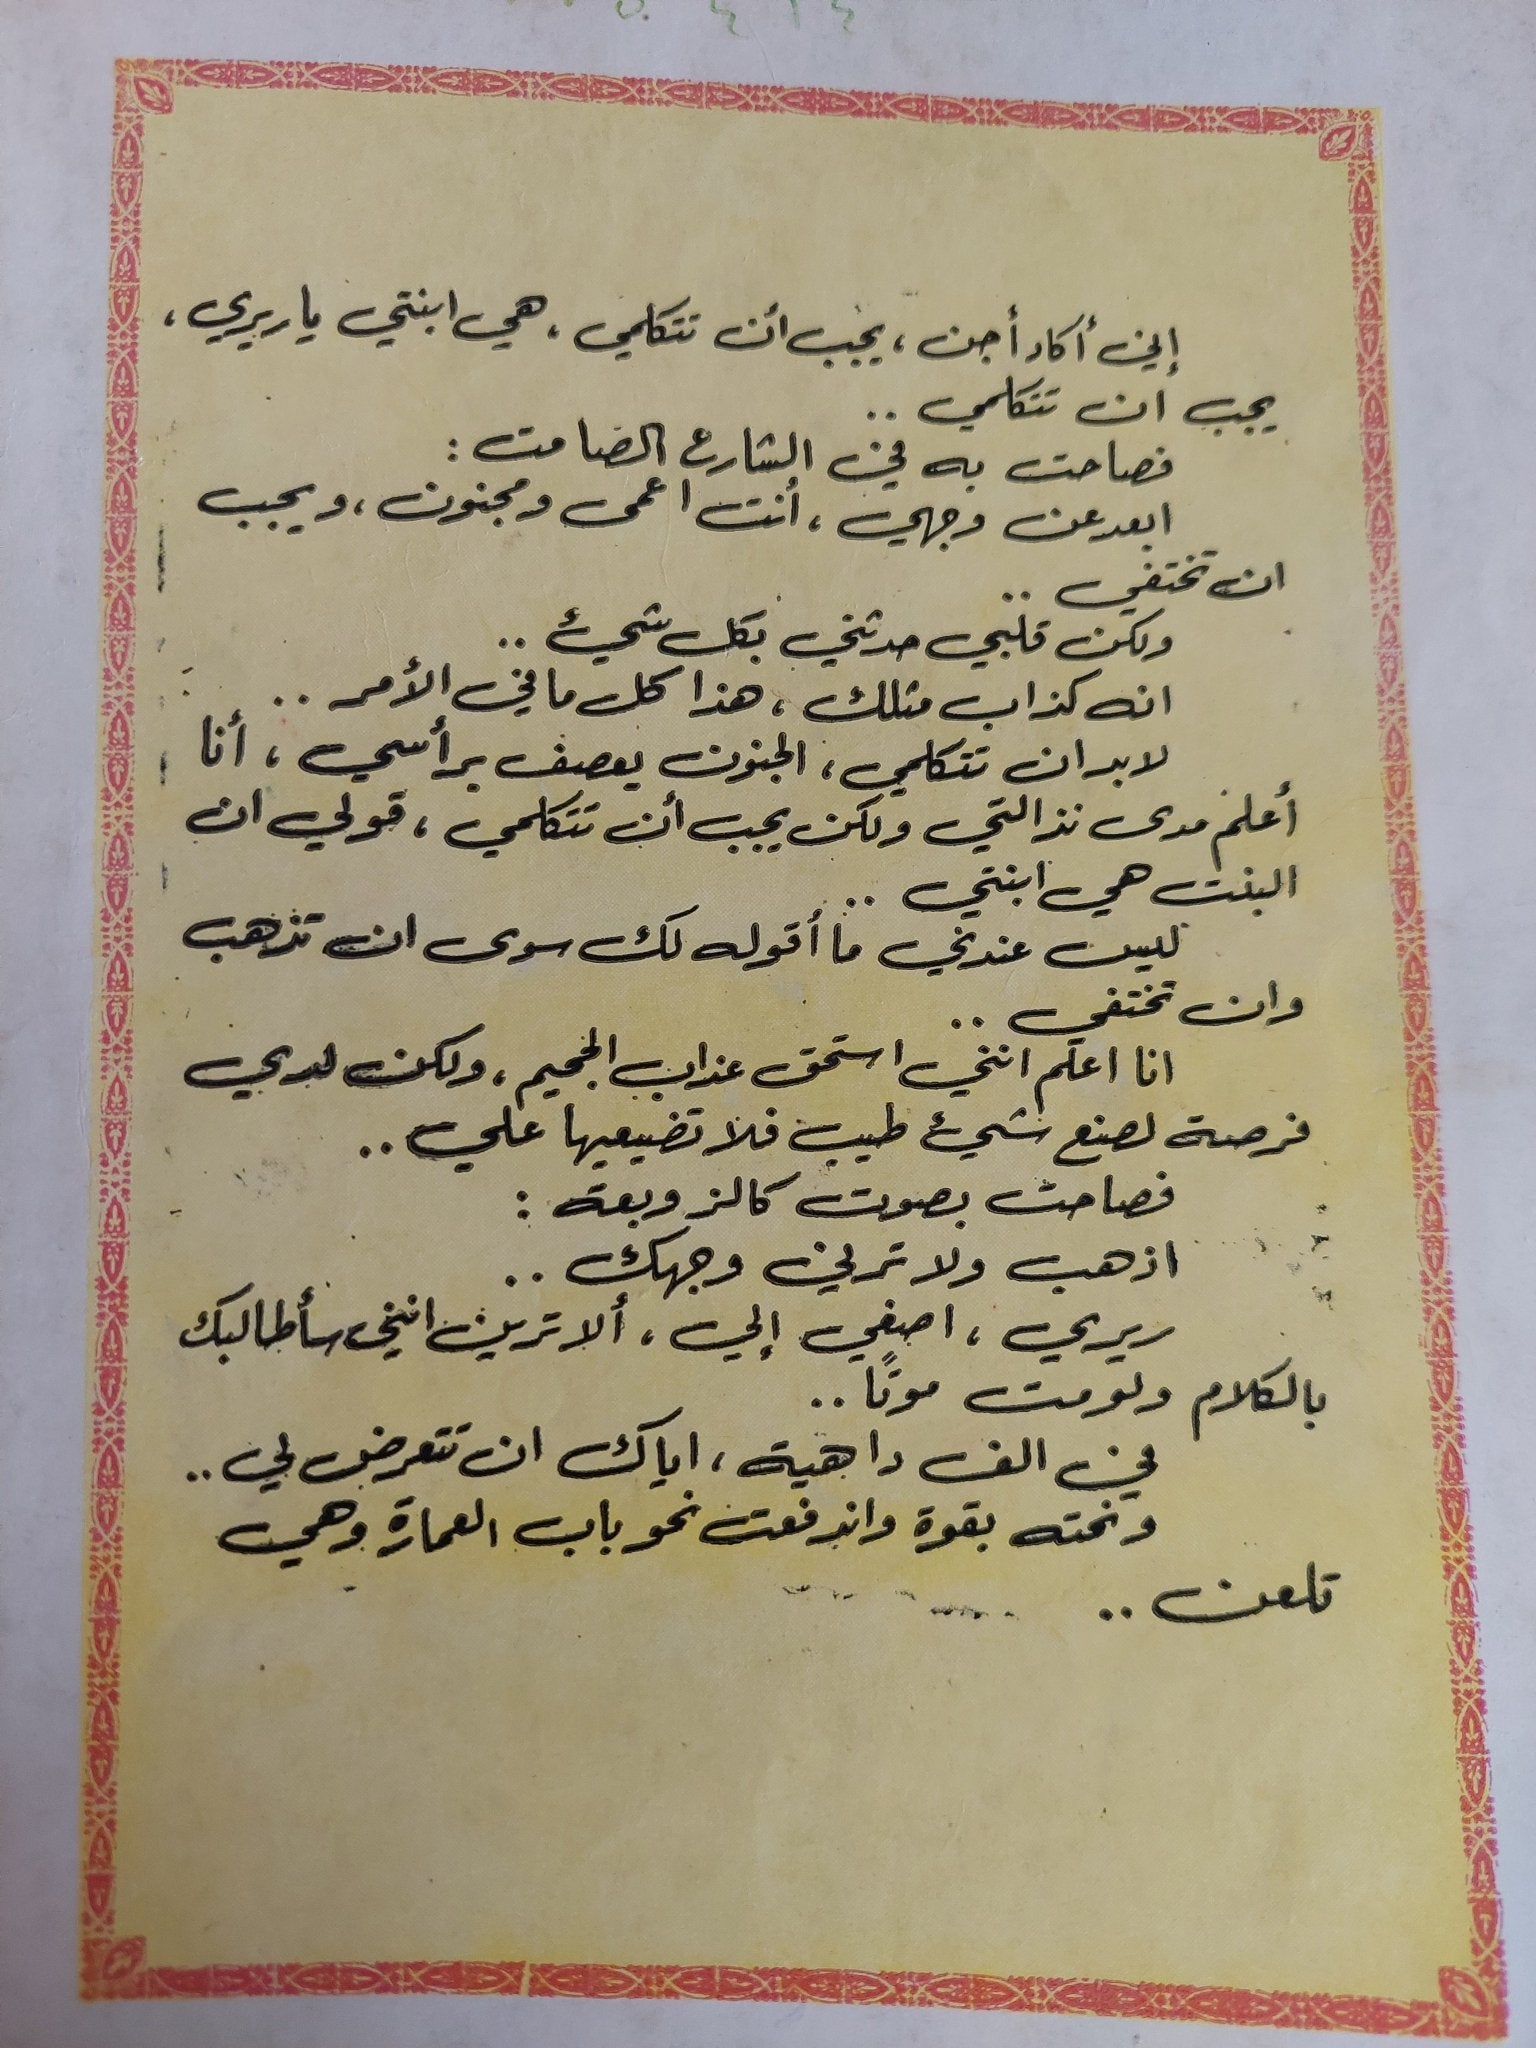 إني أكاد أجن ، يجب أن تتكلمي ، هي ابنتي يا ريري ،
يجب ان تتكلمي ..
فصاحت به في الشارع الصامت :
ابعد عن وجهي ، أنت اعمى ومجنون ، ويجب
ان تختفي ..
ولكن قلبي حدثني بكل شيئ ..
انه كذاب مثلك ، هذا كل ما في الأمر ..
لابد ان تتكلمي ، الجنون يعصف برأسي ، أنا
أعلم مدى نذالتي ولكن يجب أن تتكلمي ، قولي ان
البنت هي ابنتي ..
ليس عندي ما أقوله لك سوى ان تذهب
وان تختفي ..
انا اعلم انني استحق عذاب الجحيم ، ولكن لدي
فرصة لصنع شيئ طيب فلا تضيعيها علي ..
فصاحت بصوت كالزوبعة :
اذهب ولا ترني وجهك ..
ريري ، اصغي إلي ، ألا ترين انني سأطالبك
بالكلام ولو مت موتًا ..
في الف داهية ، اياك ان تتعرض لي ..
ونحته بقوة واندفعت نحو باب العمارة وهي
تلعن ..